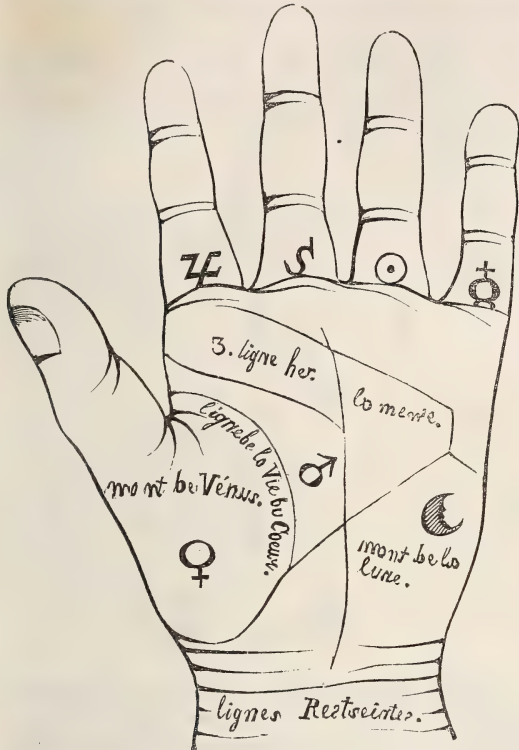 3. ligne her.
la mense.
ligne be la Vie bu Coeur.
mont be Vénus.
mont be la
lune.
lignes Restreintes.